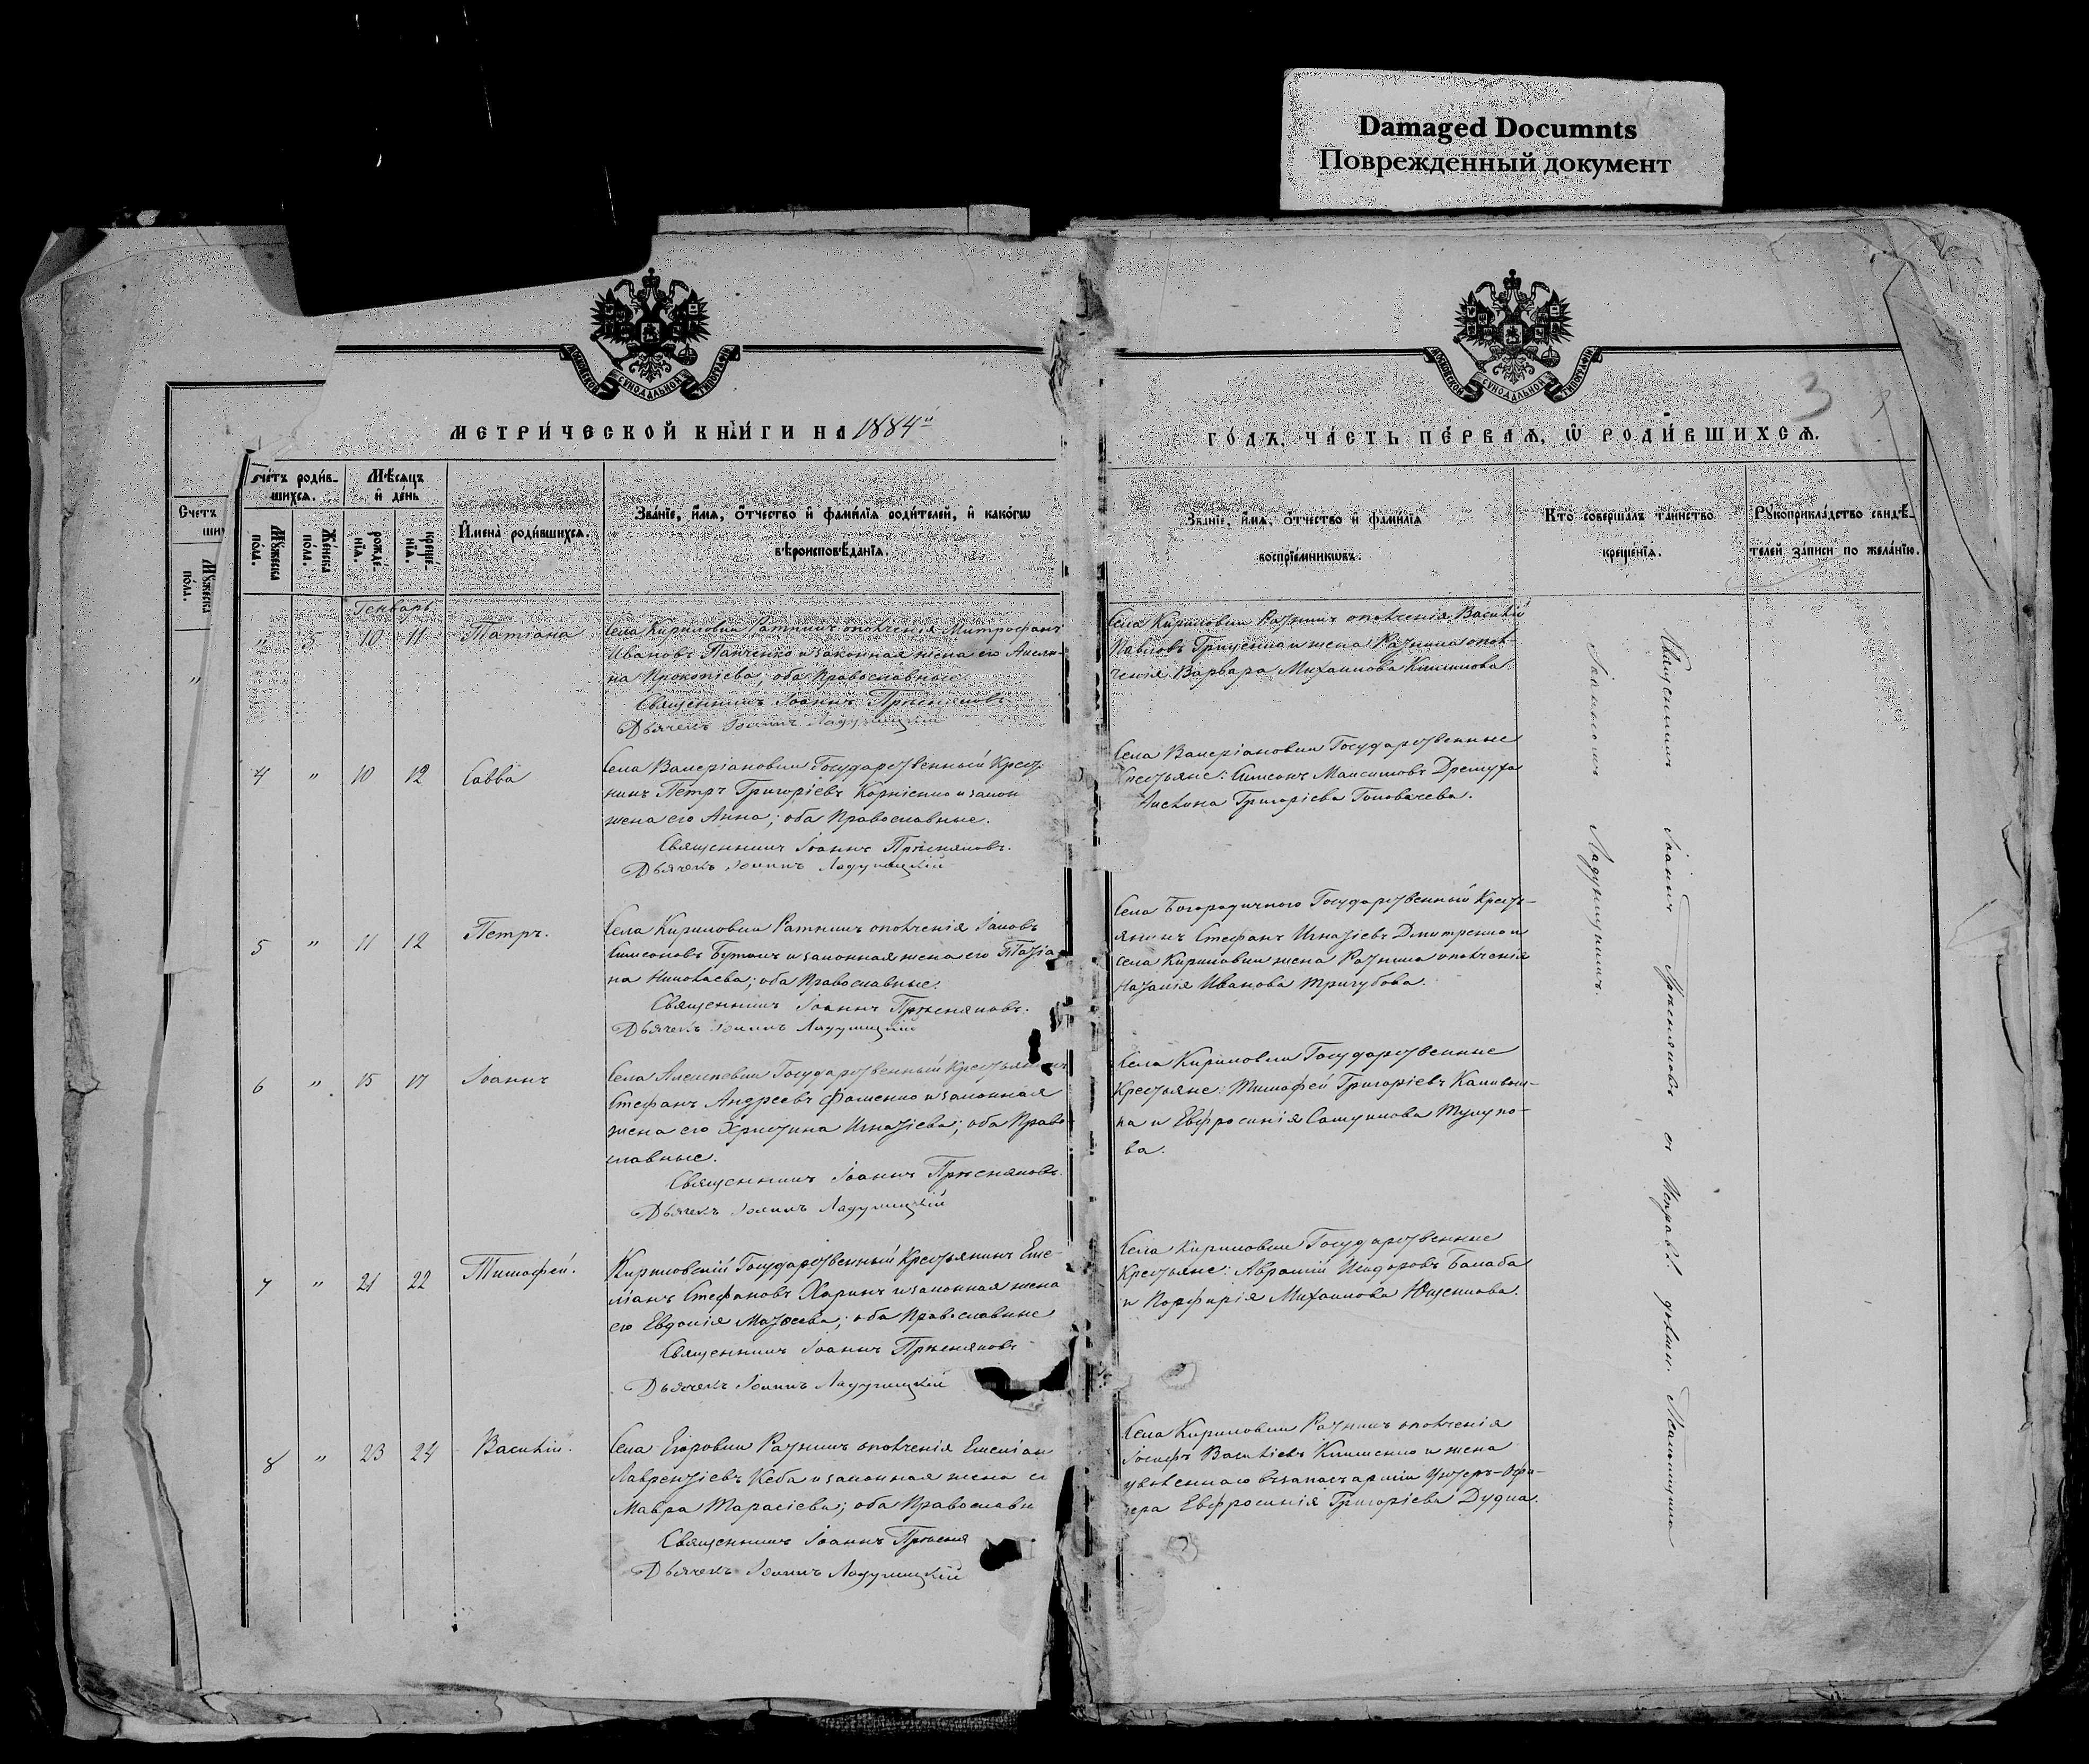 Damaged Documnts
Поврежденный документ
МОСКОВСКОЙ СѴНОДАЛЬНОЙ ТИПОГРАФІИ
МОСКОВСКОЙ СѴНОДАЛЬНОЙ ТИПОГРАФІИ
3
МЕТРИЧЕСКОЙ КНИГИ НА 1884й
ГОДЪ, ЧАСТЬ ПЕРВАЯ, Ѡ РОДИВШИХСЯ.
Счетъ
ши
Мужеска пола.
"
счетъ родив-
шихся.
Мужеска пола.
Женска пола.
Мѣсяцъ
и день
рожде-
нія.
креще-
нія.
Имена родившихся.
Званіе, имя, отчество и фамилія родителей, и какогѡ
вѣроисповѣданія.
Званіе, имя, отчество и фамилія
воспріемниковъ.
Кто совершалъ таинство
крещенія.
Рукоприкладство свидѣ-
телей записи по желанію.
Генварь
" 5 10 11 Татіана
Села Кириловки Ратникъ ополченія Митрофанъ
Ивановъ Панченко и законная жена его Акели-
на Прокопіева; оба Православные
Священникъ Іоаннъ Прѣсняковъ.
Дьячекъ Іоаннъ
Села Кириловки Ратникъ ополченія Василій
Павловъ Гриценко и жена Ратника опол-
ченія Варвара Михаилова Климкова.
4 " 10 12 Савва
Села Валеріановки Государственный Кресть
нинъ Петръ Григоріевъ Корніенко и закон
жена его Анна; оба Православные.
Священникъ Іоаннъ Прѣсняковъ.
Дьячекъ Іоаннъ
Села Валеріановки Государственные
Крестьяне: Симеонъ Максимовъ Дремуха
Акилина Григоріева Головачева.
5 " 11 12 Петръ.
Села Кириловки Ратникъ ополченія Іаковъ
Симеоновъ Бутокъ и законная жена его Татіа
на Николаева; оба Православные.
Священникъ Іоаннъ Прѣсняковъ.
Дьячекъ Іоаннъ
Села Богородичного Государственный Кресть-
янинъ Стефанъ Игнатіевъ Дмитренко и
села Кириловки жена Ратника ополченія
Наталія Иванова Тригубова.
6 " 15 17 Іоаннъ
Села Алексѣевки Государственный Крестьянинъ
Стефанъ Андреевъ Фоменко и законная
жена его Христина Игнатіева; оба Право-
славные.
Священникъ Іоаннъ Прѣсняковъ.
Дьячекъ Іоаннъ
Села Кириловки Государственные
Крестьяне: Тимофей Григоріевъ
и Евфросинія Самуилова Тулупо-
ва.
7 " 21 22 Тимофей.
Кириловскій Государственный Крестьянинъ Еме-
ліанъ Стефановъ Харинъ и законная жена
его Евдокія Матѳеева; оба Православные
Священникъ Іоаннъ Прѣсняковъ
Дьячекъ Іоаннъ
Села Кириловки Государственные
Крестьяне: Аврамій Исидоровъ Балаба
и Порфирія Михаилова Ющенкова.
8 " 23 24 Василій.
Села Егоровки Ратникъ ополченія Емеліан
Лаврентіевъ Кеба и законная жена ег
Мавра Тарасіева; оба Православн
Священникъ Іоаннъ Прѣсня
Дьячекъ Іоаннъ
Села Кириловки Ратникъ ополченія
Іосифъ Василіевъ Клименко и жена
уволеннаго въ запасъ арміи Унтеръ-Офи-
цера Евфросинія Григоріева Дудка.
Священникъ Іоаннъ Прѣсняковъ съ